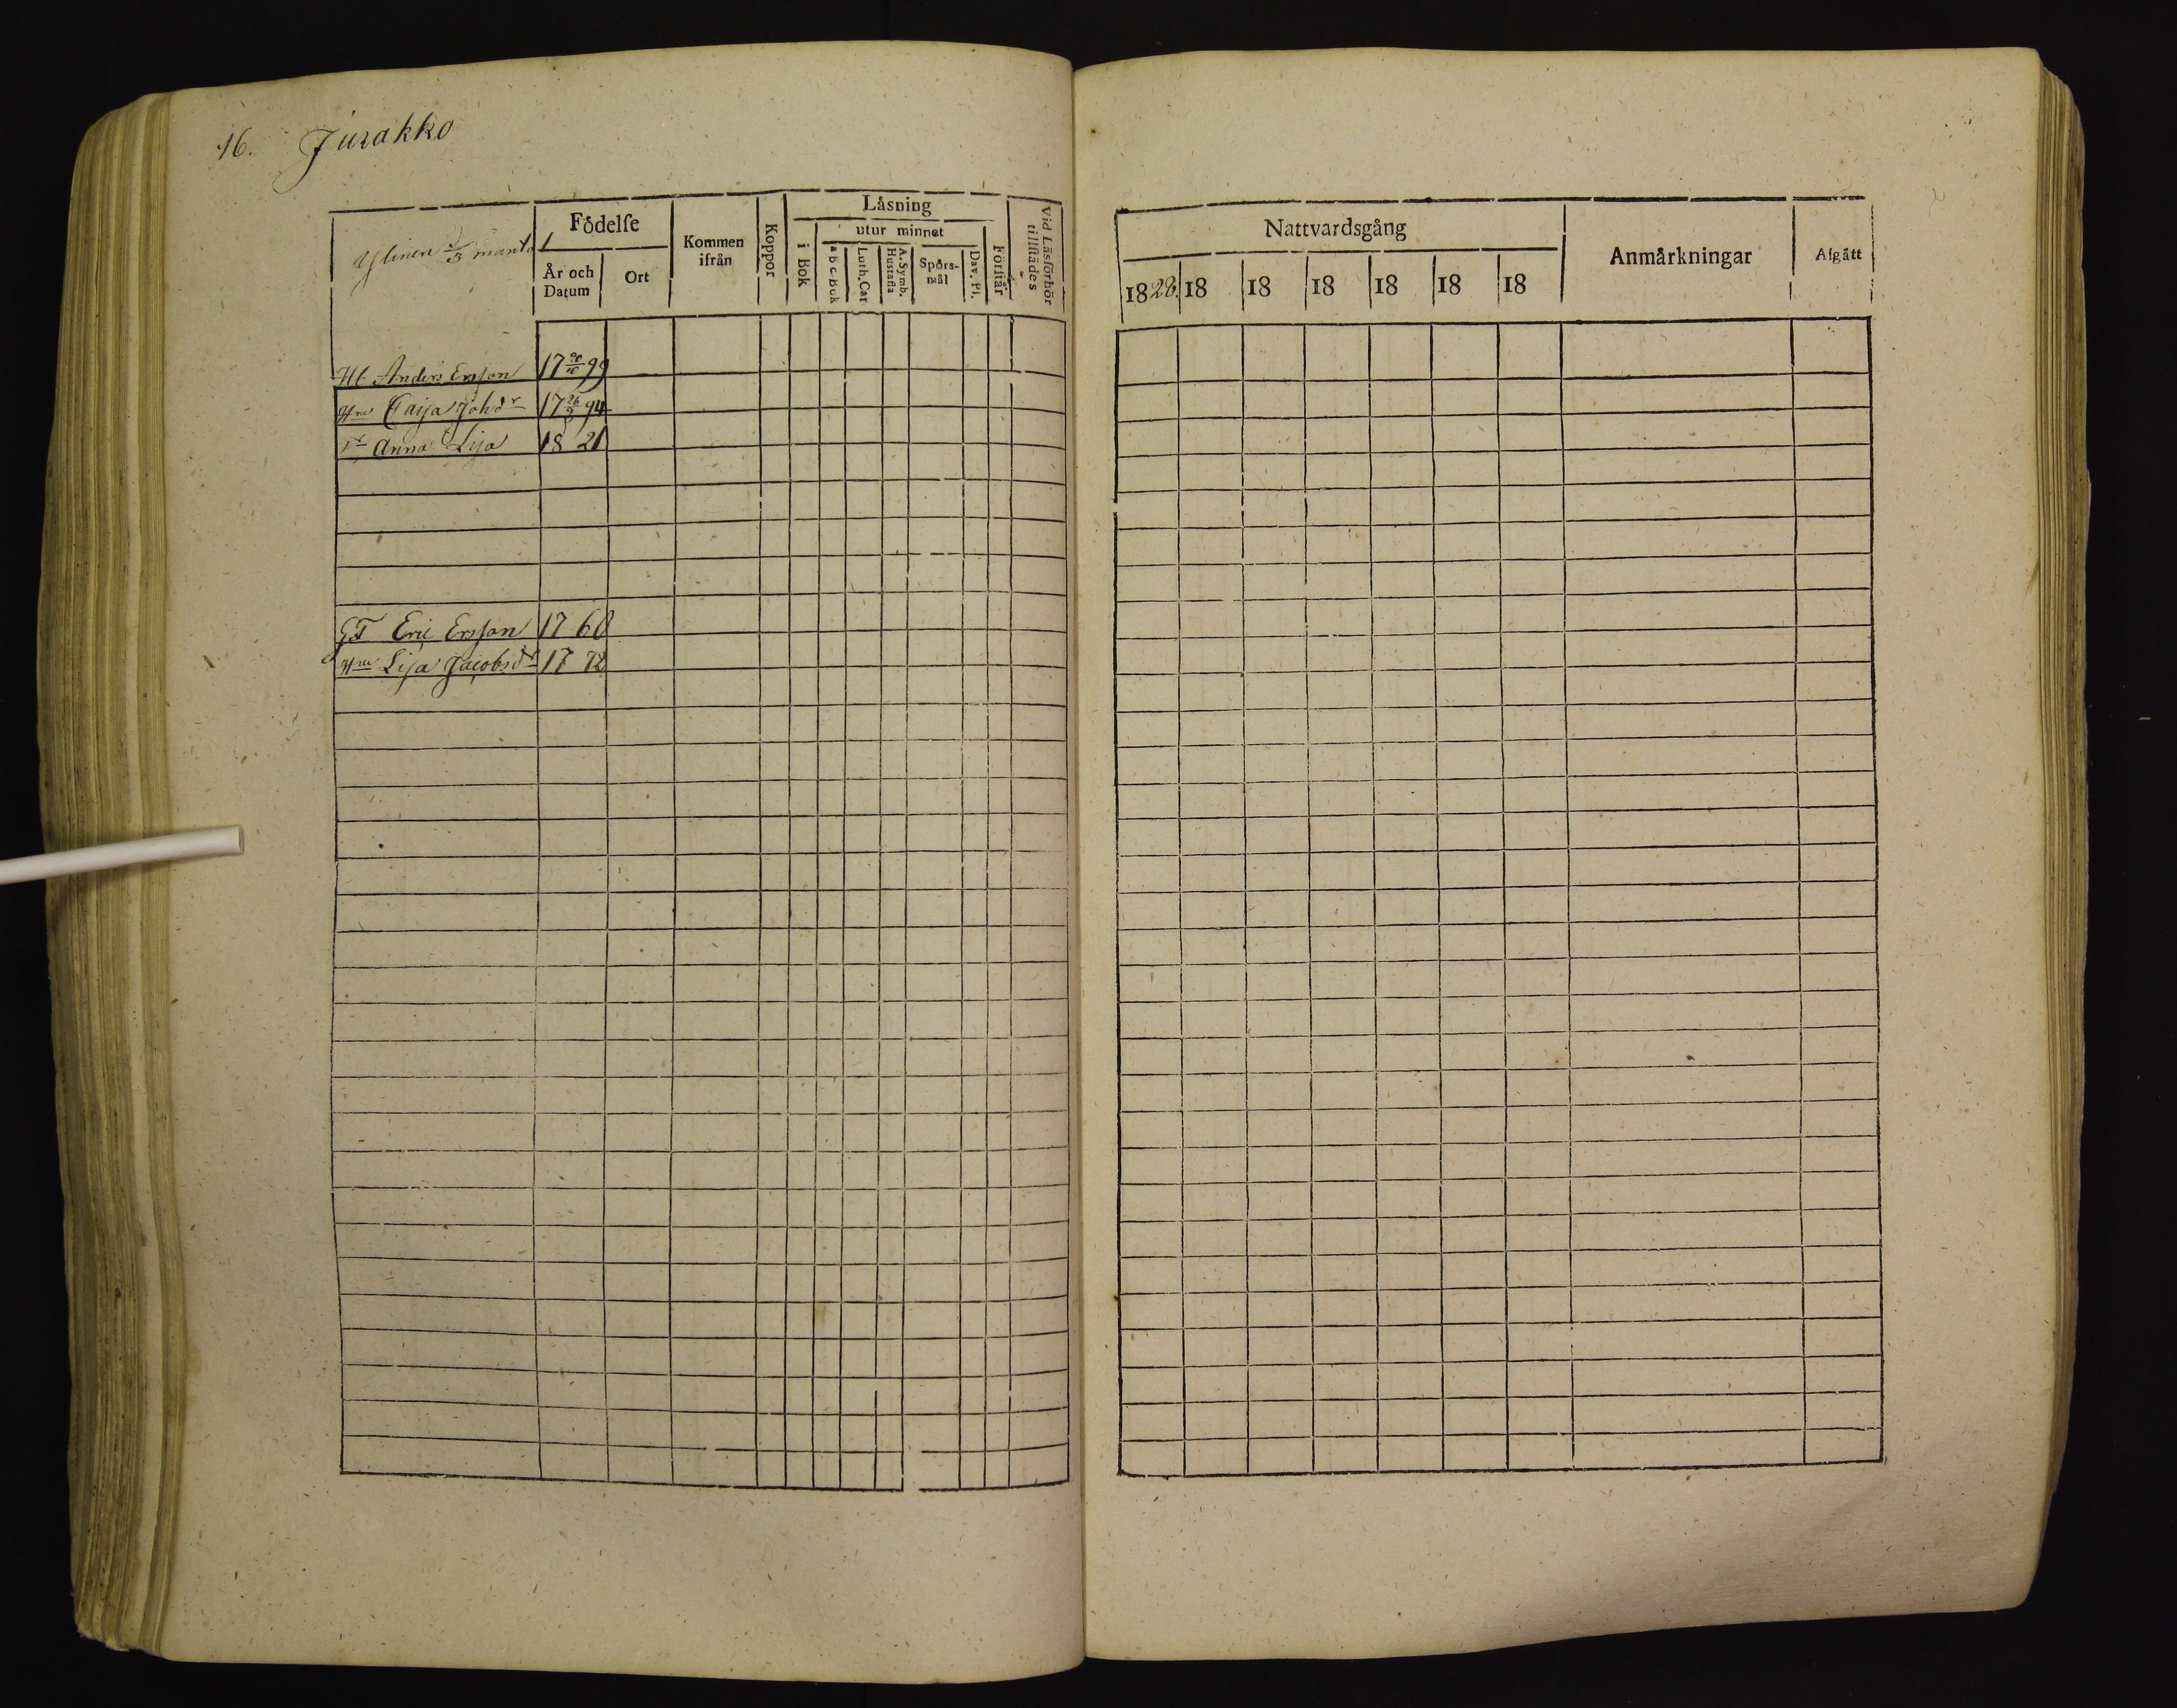 16. Jurakko
Ylinen 1/3 mantal
Födelse
År och Datum
Ort
Kommen ifrån
Koppor
Låsning
i Bok
utur minnet
a b c-Bok
Luth. Cat
A. Symb. Hustafla
Spårs-mål
Dav. Ps.
Förstår
Vid Läsförhör tillstädes
Nattvardsgång
1828. 18 18 18 18 18 18
Anmårkningar
Afgått
Hb Anders Ersson 17 20/10 99
Hu Caisa Johdr 17 26/2 94
Dr Anna Lisa 18 21
GF Eric Ersson 17 60
Hu Lisa Jacobsdr 17 72